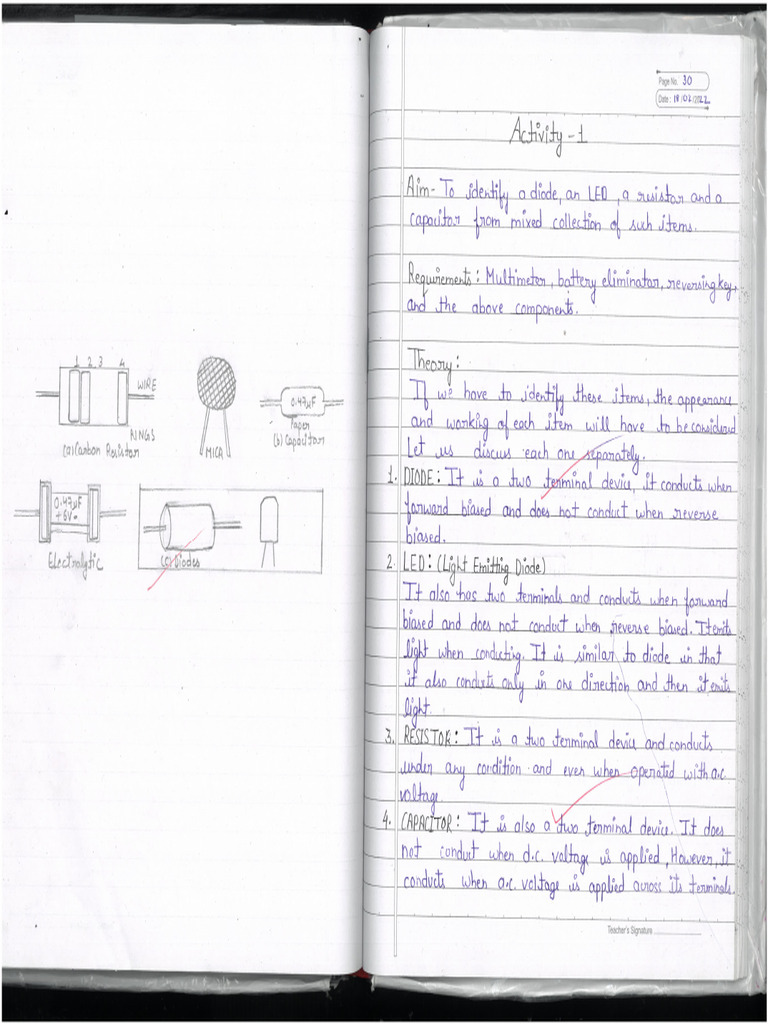 1 2 3 4
WIRE
RINGS
(a) Carbon Resistor
MICA
0.47µF
Paper
(b) Capacitor
0.47µF
+6V-
Electrolytic
(c) Diodes
Page No. 30
Date: 18/02/2022
Activity - 1
Aim- To identify a diode, an LED, a resistor and a
capacitor from mixed collection of such items.
Requirements: Multimeter, battery eliminator, reversing key,
and the above components.
Theory:
If we have to identify these items, the appearance
and working of each item will have to be considered
Let us discuss each one separately.
1. DIODE: It is a two terminal device, it conducts when
forward biased and does not conduct when reverse
biased.
2. LED: (Light Emitting Diode)
It also has two terminals and conducts when forward
biased and does not conduct when reverse biased. It emits
light when conducting. It is similar to diode in that
it also conducts only in one direction and then it emits
light.
3. RESISTOR: It is a two terminal device and conducts
under any condition and even when operated with a.c
voltage
4. CAPACITOR: It is also a two terminal device. It does
not conduct when d.c. voltage is applied, However, it
conducts when a.c. voltage is applied across its terminals.
Teacher's Signature